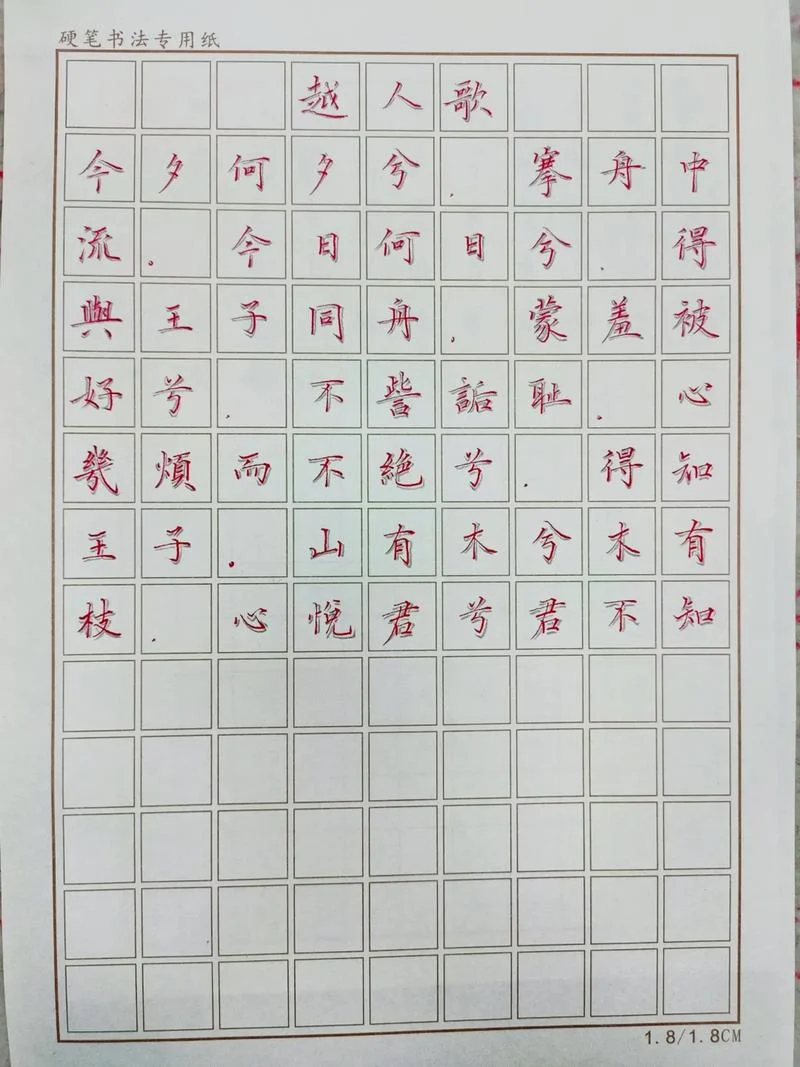 硬笔书法专用纸
越人歌
今夕何夕兮.搴舟中
流.今日何日兮.得
與王子同舟.蒙羞被
好兮.不訾詬耻.心
幾煩而不絕兮.得知
王子.山有木兮木有
枝.心悅君兮君不知
1.8/1.8CM